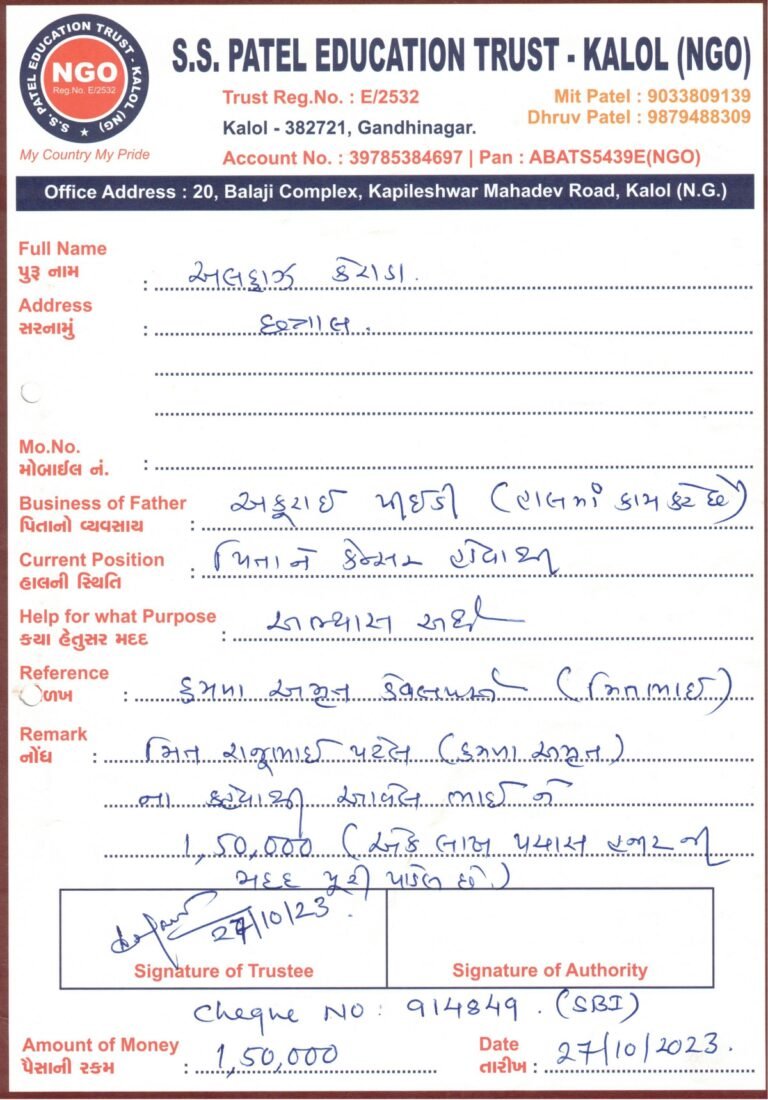 S.S. PATEL EDUCATION TRUST - KALOL (NG)
NGO
Reg.No. E/2532
My Country My Pride
S.S. PATEL EDUCATION TRUST - KALOL (NGO)
Trust Reg.No. : E/2532
Mit Patel : 9033809139
Kalol - 382721, Gandhinagar.
Dhruv Patel : 9879488309
Account No. : 39785384697 | Pan : ABATS5439E(NGO)
Office Address : 20, Balaji Complex, Kapileshwar Mahadev Road, Kalol (N.G.)
Full Name
પુરૂ નામ : અલફાઝ
Address
સરનામું :
Mo.No.
મોબાઈલ નં. :
Business of Father
પિતાનો વ્યવસાય : (હાલમાં કામ કરે છે)
Current Position
હાલની સ્થિતિ : પિતાને કેન્સર હોવાથી
Help for what Purpose
કયા હેતુસર મદદ : અભ્યાસ અર્થે
Reference
ળખ : અમૃત (મિતભાઈ)
Remark
નોંધ : મિત રાજુભાઈ પટેલ ( અમૃત)
ના કહેવાથી આવેલ ભાઈ ને
1,50,000 (એક લાખ પચાસ હજાર ની
મદદ પૂરી પાડેલ છે.)
27/10/23
Signature of Trustee
Signature of Authority
Cheque NO : 914849 . (SBI)
Amount of Money
પૈસાની રકમ : 1,50,000
Date
તારીખ : 27/10/2023.